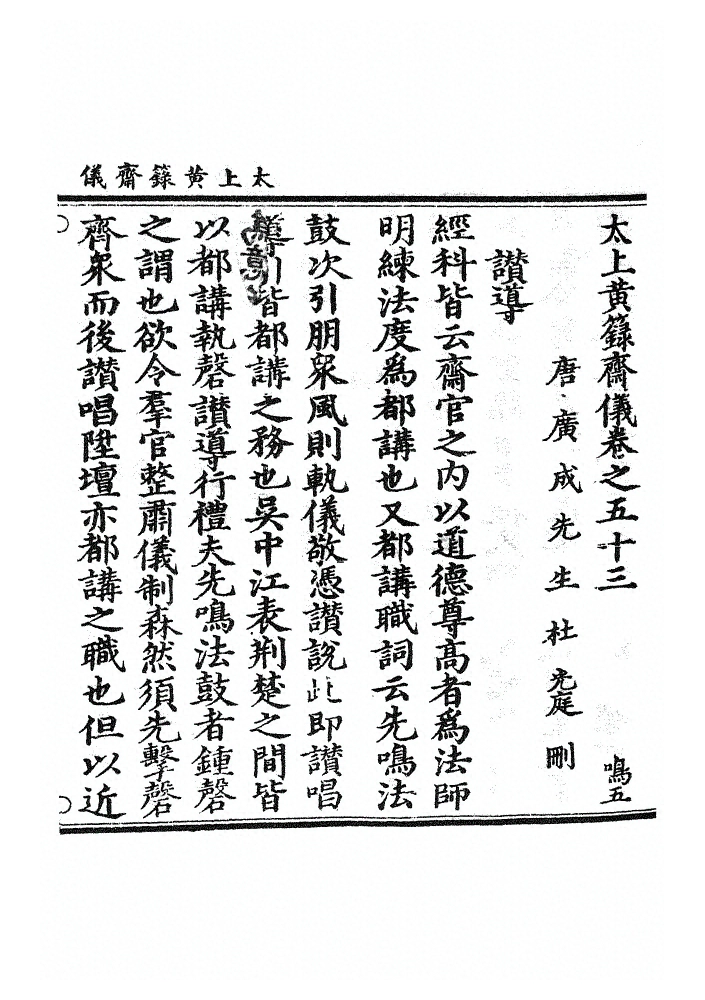 太上黃籙齋儀
太上黃籙齋儀卷之五十三　鳴五
唐廣成先生杜光庭刪
讃導
經科皆云齋官之内以道德尊高者爲法師
明練法度爲都講也又都講職詞云先鳴法
鼓次引朋衆風則軌儀敬憑讃說此即讃唱
導引皆都講之務也吳中江表荆楚之間皆
以都講執磬讃導行禮夫先鳴法鼓者鍾磬
之謂也欲令羣官整肅儀制森然須先擊磬
齊衆而後讃唱陞壇亦都講之職也但以近